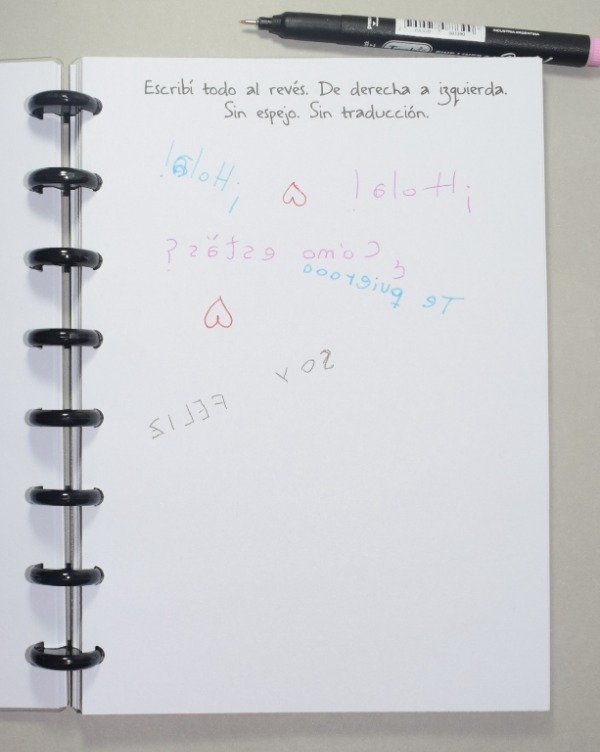 INDUSTRIA ARGENTINA
Escribí todo al revés. De derecha a izquierda.
Sin espejo. Sin traducción.
¡Hola!
¡Hola!
¿Cómo estás?
Te quierooo
SOY
FELIZ